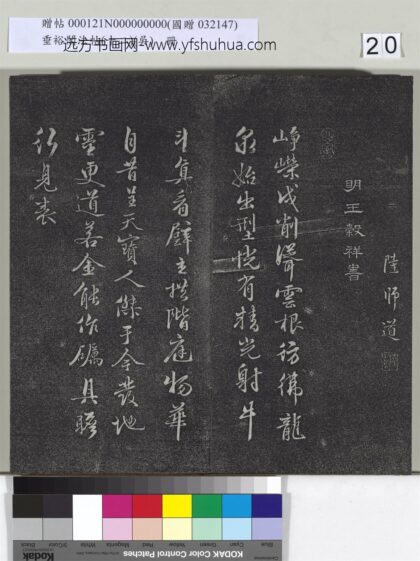 贈帖 000121N000000000(國贈 032147)
远方书画网-www.yfshuhua.com
20
陸師道
明王穀祥書
崢嶸戍削聳雲根彷彿龍
泉始出型恍有精光射牛
斗真看壁立拱階庭物華
自昔呈天寶人傑于今發地
靈更道若金能作礪具瞻
行見表
KODAK Color Control Patches
Blue
Cyan
Green
Yellow
Red
Magenta
White
3/Color
Black
Kodak